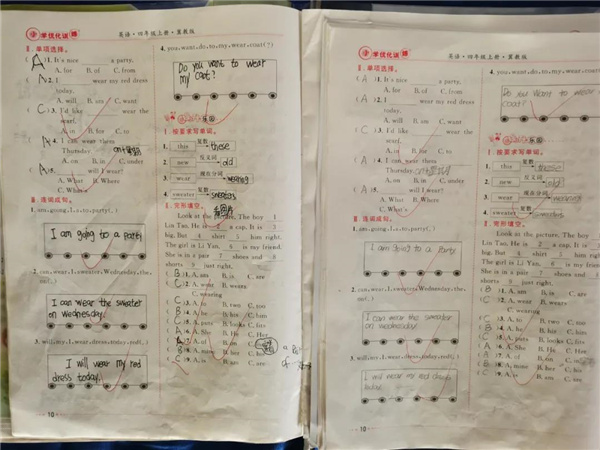 学优化训练
英语·四年级上册·冀教版
Ⅱ.单项选择。
( A )1. It's nice a party.
A. for B. of C. from
2. I wear my red dress
today.
A. will B. am C. want
( C )3. I'd like wear the
scarf.
A. in B. for C. to
4. I can wear them
Thursday.
A. on B. in C. under
( A )5. will I wear?
A. What B. Where
C. What's
Ⅲ.连词成句。
1. am, going, I, a, to, party(.)
I am going to a party.
2. can, wear, I, sweater, Wednesday, the,
on(.)
I can wear the sweater
on Wednesday.
3. will, my, I, wear, dress, today, red(.)
I will wear my red
dress today.
10
4. you, want, do, to, my, wear, coat(?)
Do you want to wear
my coat?
乐园
Ⅰ.按要求写单词。
1. this 复数 these
2. new 反义词 old
3. wear 现在分词 wearing
4. sweater 复数 sweaters
Ⅱ.完形填空。
Look at the picture. The boy 1
Lin Tao. He is 2 a cap. It is 3
big. But 4 short 5 him right.
The girl is Li Yan. 6 is my friend.
She is in a pair 7 shoes and 8
shorts 9 just right.
( B )1. A. am B. is C. are
( C )2. A. wear B. wears
C. wearing
( C )3. A. two B. too
4. A. he B. his C. him
5. A. puts B. looks C. fits
( A )6. A. She B. He C. Her
7. A. of B. on
8. A. mine B. her C. his
( C )9. A. is B. am C. are
学优化训练
英语·四年级上册·冀教版
Ⅱ.单项选择。
( A )1. It's nice a party.
A. for B. of C. from
( A )2. I wear my red dress
today.
A. will B. am C. want
( C )3. I'd like wear the
scarf.
A. in B. for C. to
4. I can wear them
Thursday.
A. on B. in C. under
5. will I wear?
A. What B. Where
C. What's
Ⅲ.连词成句。
1. am, going, I, a, to, party(.)
I am going to a party
2. can, wear, I, sweater, Wednesday, the,
on(.)
I can wear the sweater
on Wednesday
3. will, my, I, wear, dress, today, red(.)
I will wear my red dress
today.
10
4. you, want, do, to, my, wear,
Do you want to wear
coat?
乐园
Ⅰ.按要求写单词。
1. this 复数 these
2. new 反义词 old
3. wear 现在分词
4. sweater 复数 sweaters
Look at the picture.
Lin Tao. He is 2 a cap.
big. But 4 short 5
The girl is Li Yan. 6 is
She is in a pair 7 shoes
shorts 9 just right.
( B )1. A. am B. is
2. A. wear B. wears
C. wearing
3. A. two
4. A. he B. his
5. A. puts B. looks
6. A. She B. He
7. A. of
8. A. mine B. her
9. A. is B. am